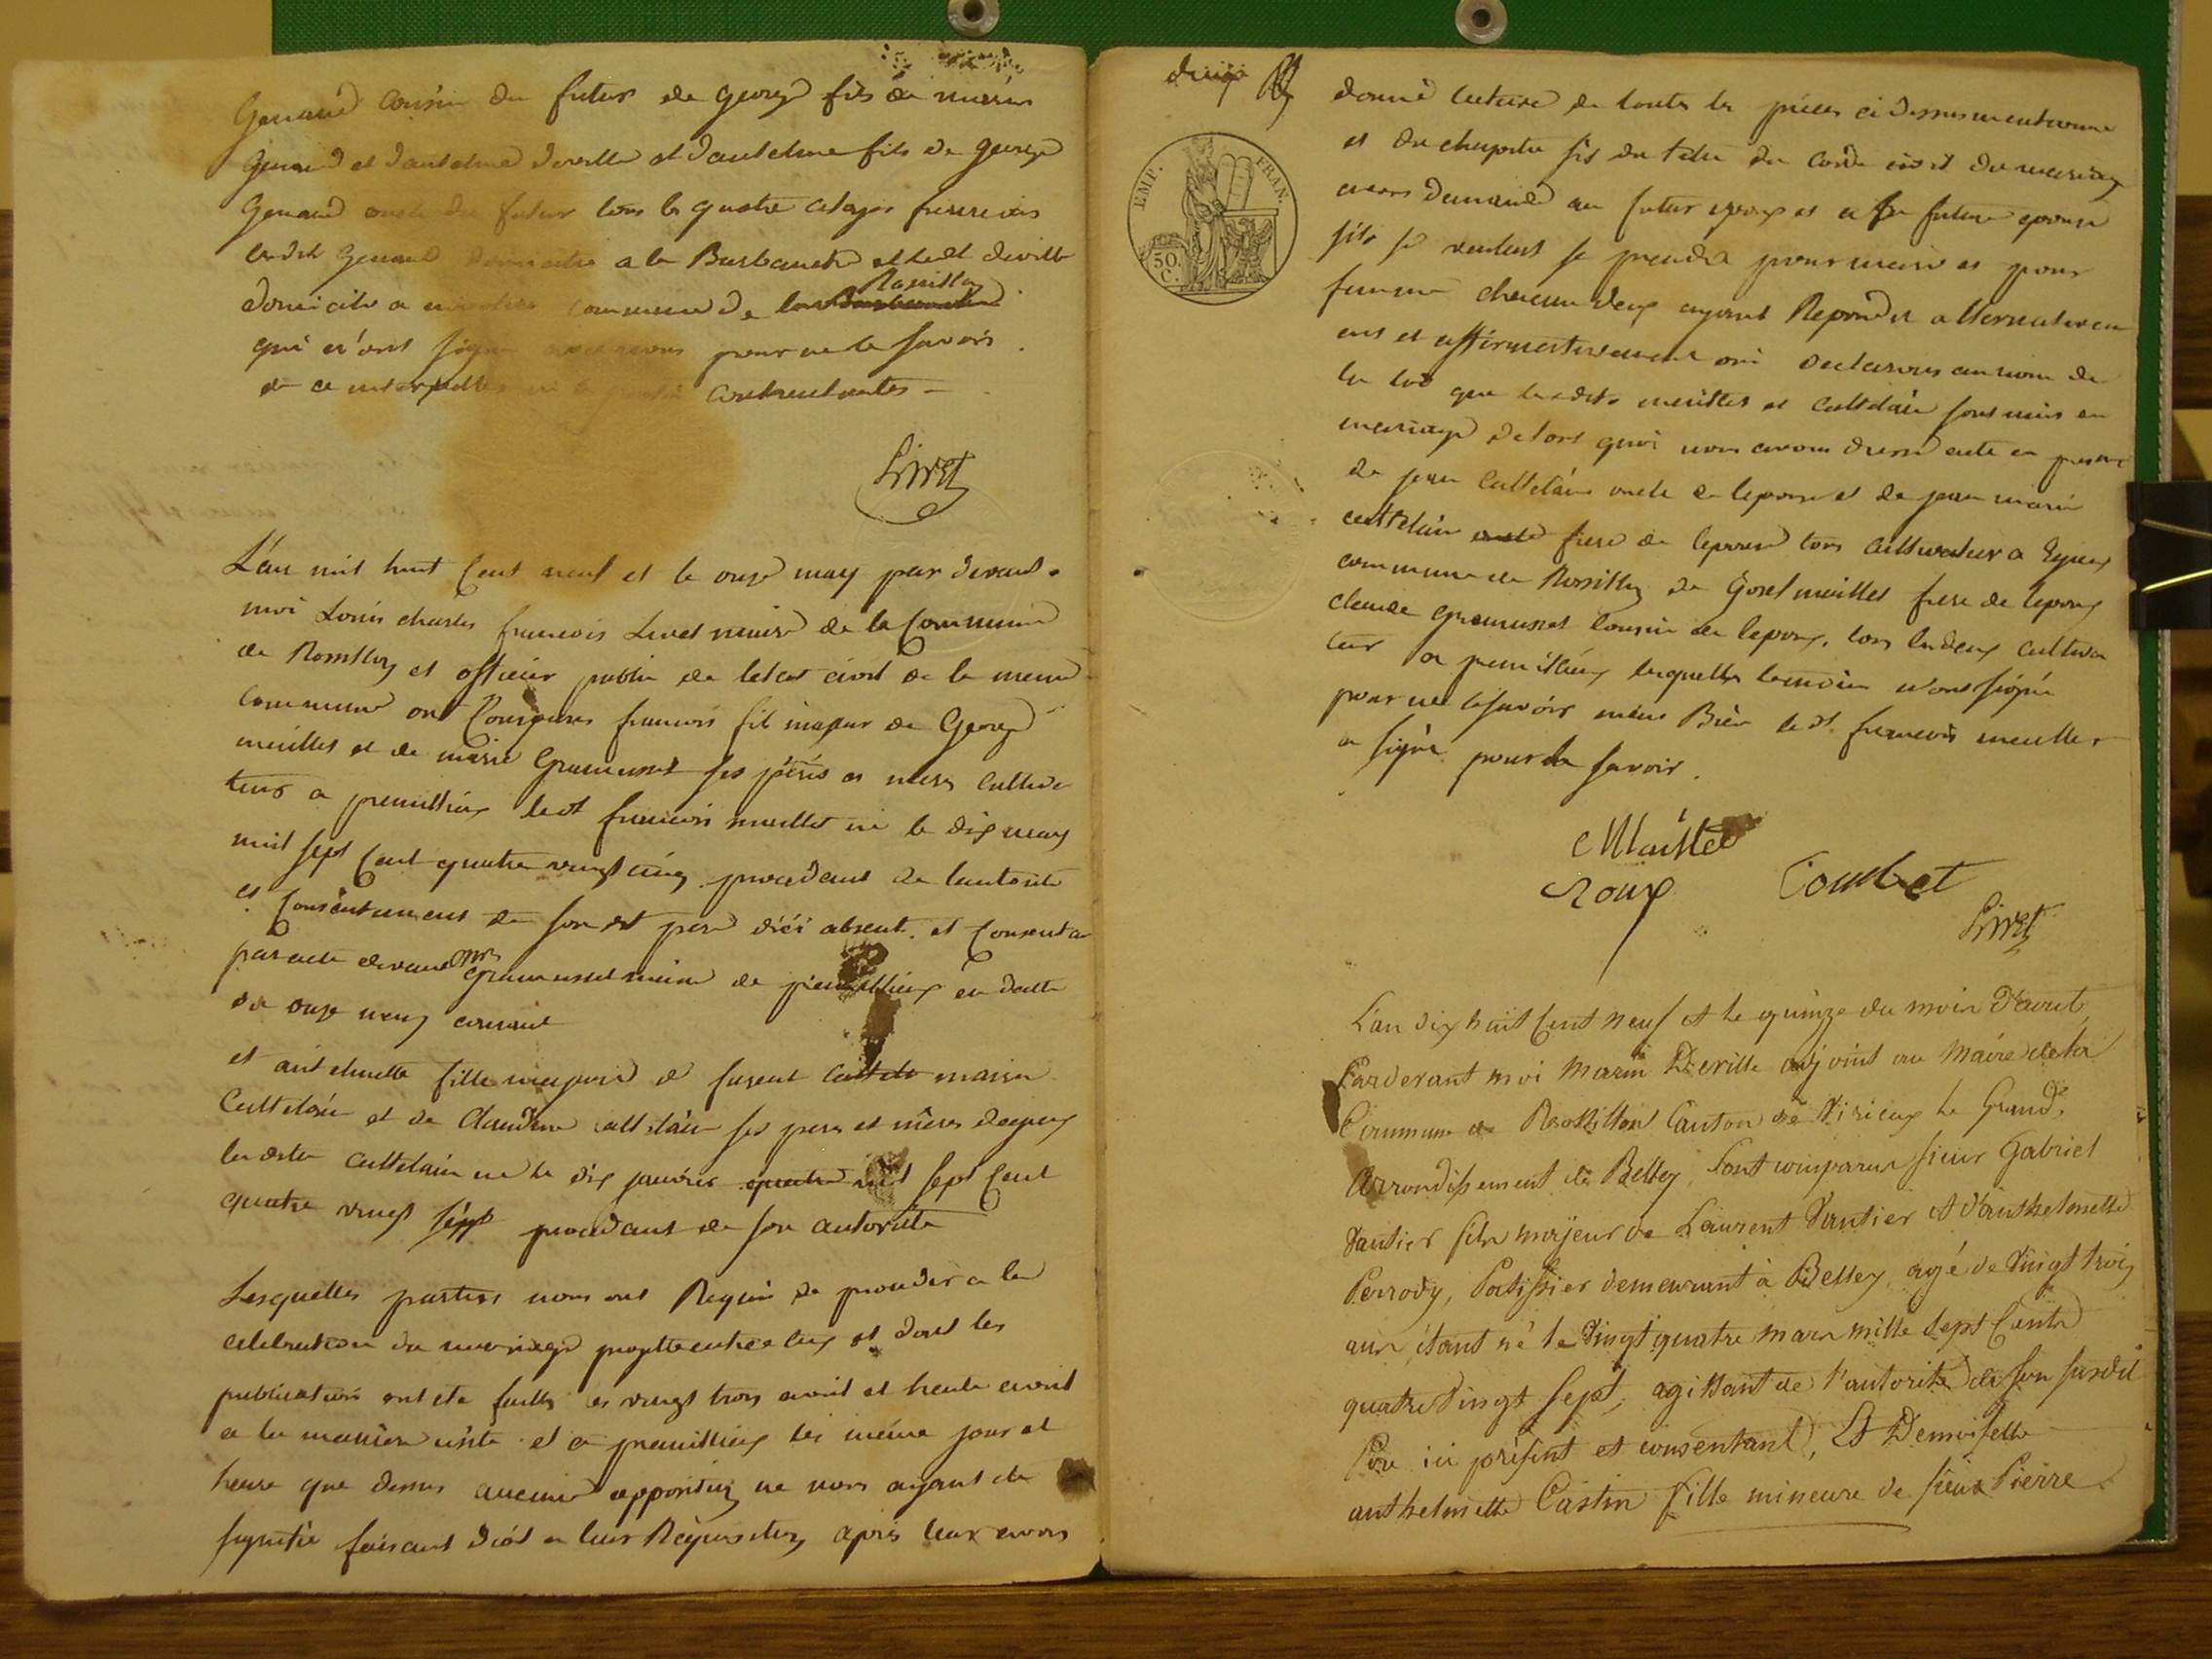 Genaud cousin du futur de George fils de marin
Genaud et d'antelme deville et d'antelme fils de George
Genaud oncle du futur tous les quatre
ledit Genaud domicilie a la Burbanche et ledit deville
Rossillon
domicilie a commune de la Burbanche
qui n'ont signe pour ne le savoir
de ce contractantes
Livet
L'an mil huit Cent neuf et le onze may par devant
moi Louis charles francois Livet maire de la Commune
de Rossillon et officier public de letat civil de la meme
commune ont Comparus francois fil majeur de George
meillet et de marie Gramusset ses peres et meres cultiva
teurs a premillieu ledt francois meillet né le dix may
mil sept Cent quatre vingt cinq procedant de lautorité
et Consentement de son dt pere d'ici absent et Consentan
par acte devant mr Gramusset maire de premillieu en datte
du onze may courant
et antelmette fille majeure de marin
Cuttelain et de Claudine cuttelain ses peres et mères
ladite Cuttelain née le dix janvier quatre mil sept Cent
quatre vingt sept procedant de son autorité
Lesquelles parties nous ont Requis de proceder a la
celebration du mariage projetté entre eux et dont les
publications ont eté faittes les vingt trois avril et trente avril
a la manière et a premillieu les même jour et
heure que dessus aucune opposition ne nous ayant eté
signifié faisant droit a leur Réquisition, après leur avoir
EMP. FRAN.
50. C.
donné lecture de toutes les pièces ci dessus mentionné
et du chapitre six du titre du code civil du mariage
avons demandé au futur epoux et a la future epouse
s'ils se veulent se prendre pour mari et pour
femme chacun deux ayant Repondu alternativem
ent et affirmativement oui declarons au nom de
la loi que lesdits meillet et Cuttelain sont unis en
mariage de tout quoi nous avons dressé acte en presence
de jean Cuttelain oncle de lepouse et de jean marie
cuttelain oncle frere de lepouse tous cultivateur a
commune de Rossillon de Josef meillet frere de lepoux
claude Gramusset Cousin de lepoux, tous les deux cultiva
teur a premillieu lesquelles temoins n'ont signés
pour ne le savoir mais Bien ledt francois meillet
a signé pour le savoir.
Meillet
Roux Combet
Livet
L'an dix huit Cent neuf et le quinze du mois d'Aout
Pardevant moi Marin Deville adjoint au Maire de la
Commune de Rossillon Canton de Virieux le Grand,
Arrondissement de Belley, sont comparus sieur Gabriel
Vantier fils majeur de Laurent Vantier et d'anthelmette
Perrody, Patissier demeurant à Belley, agé de Vingt trois
ans étant né le Vingt quatre mars mille sept Cents
quatre Vingt Sept, agissant de l'autorité de son susdit
Père ici présent et consentant, Et Demoiselle
anthelmette Castin fille mineure de sieur Pierre